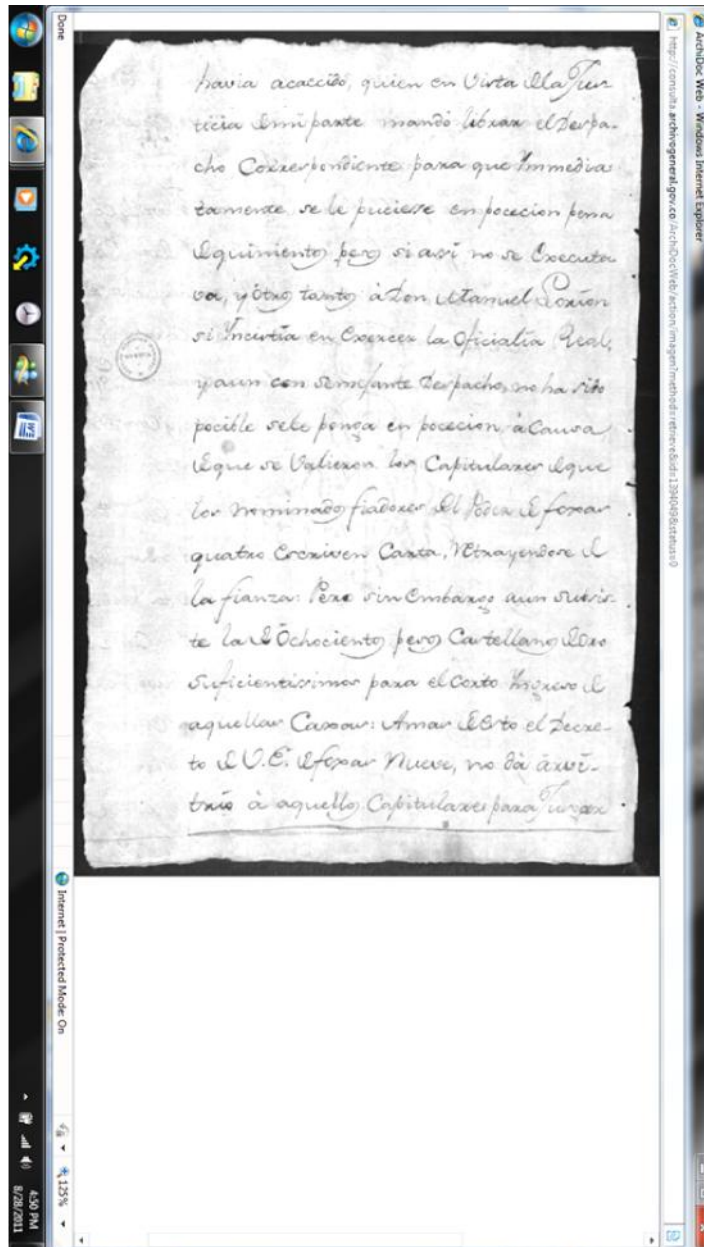 ArchiDoc Web - Windows Internet Explorer
http://consulta.archivogeneral.gov.co/ArchiDocWeb/action/imagen?method=retrieve&id=1394049&status=0
havia acaecido, quien en Vista de la Jus-
ticia de mi parte mandó librar el Despa-
cho Correspondiente para que Immedia
tamente se le puciesse en pocecion pena
de quinientos pesos si assi no se Executa
va, y otros tantos à Don Manuel
si Incistia en Exercer la Oficialia Real,
y aun con Semejante Despacho, no ha sido
pocible sele ponga en pocecion, à Causa
de que se Valieron los Capitulares de que
los nominados fiadores del Poder de foxas
quatro Escriven Carta, retrayendose de
la fianza: Pero sin Embargo aun Subsis-
te la de Ochocientos pesos Castellanos de Oro
Suficientissimos para el Corto Ingreso de
aquellas Caxas: Amas de Esto el Decre-
to de V.E. de foxas Nueve, no dà arvi-
trio à aquellos Capitulares para Juzgar
Done
Internet | Protected Mode: On
125%
4:50 PM
8/28/2011